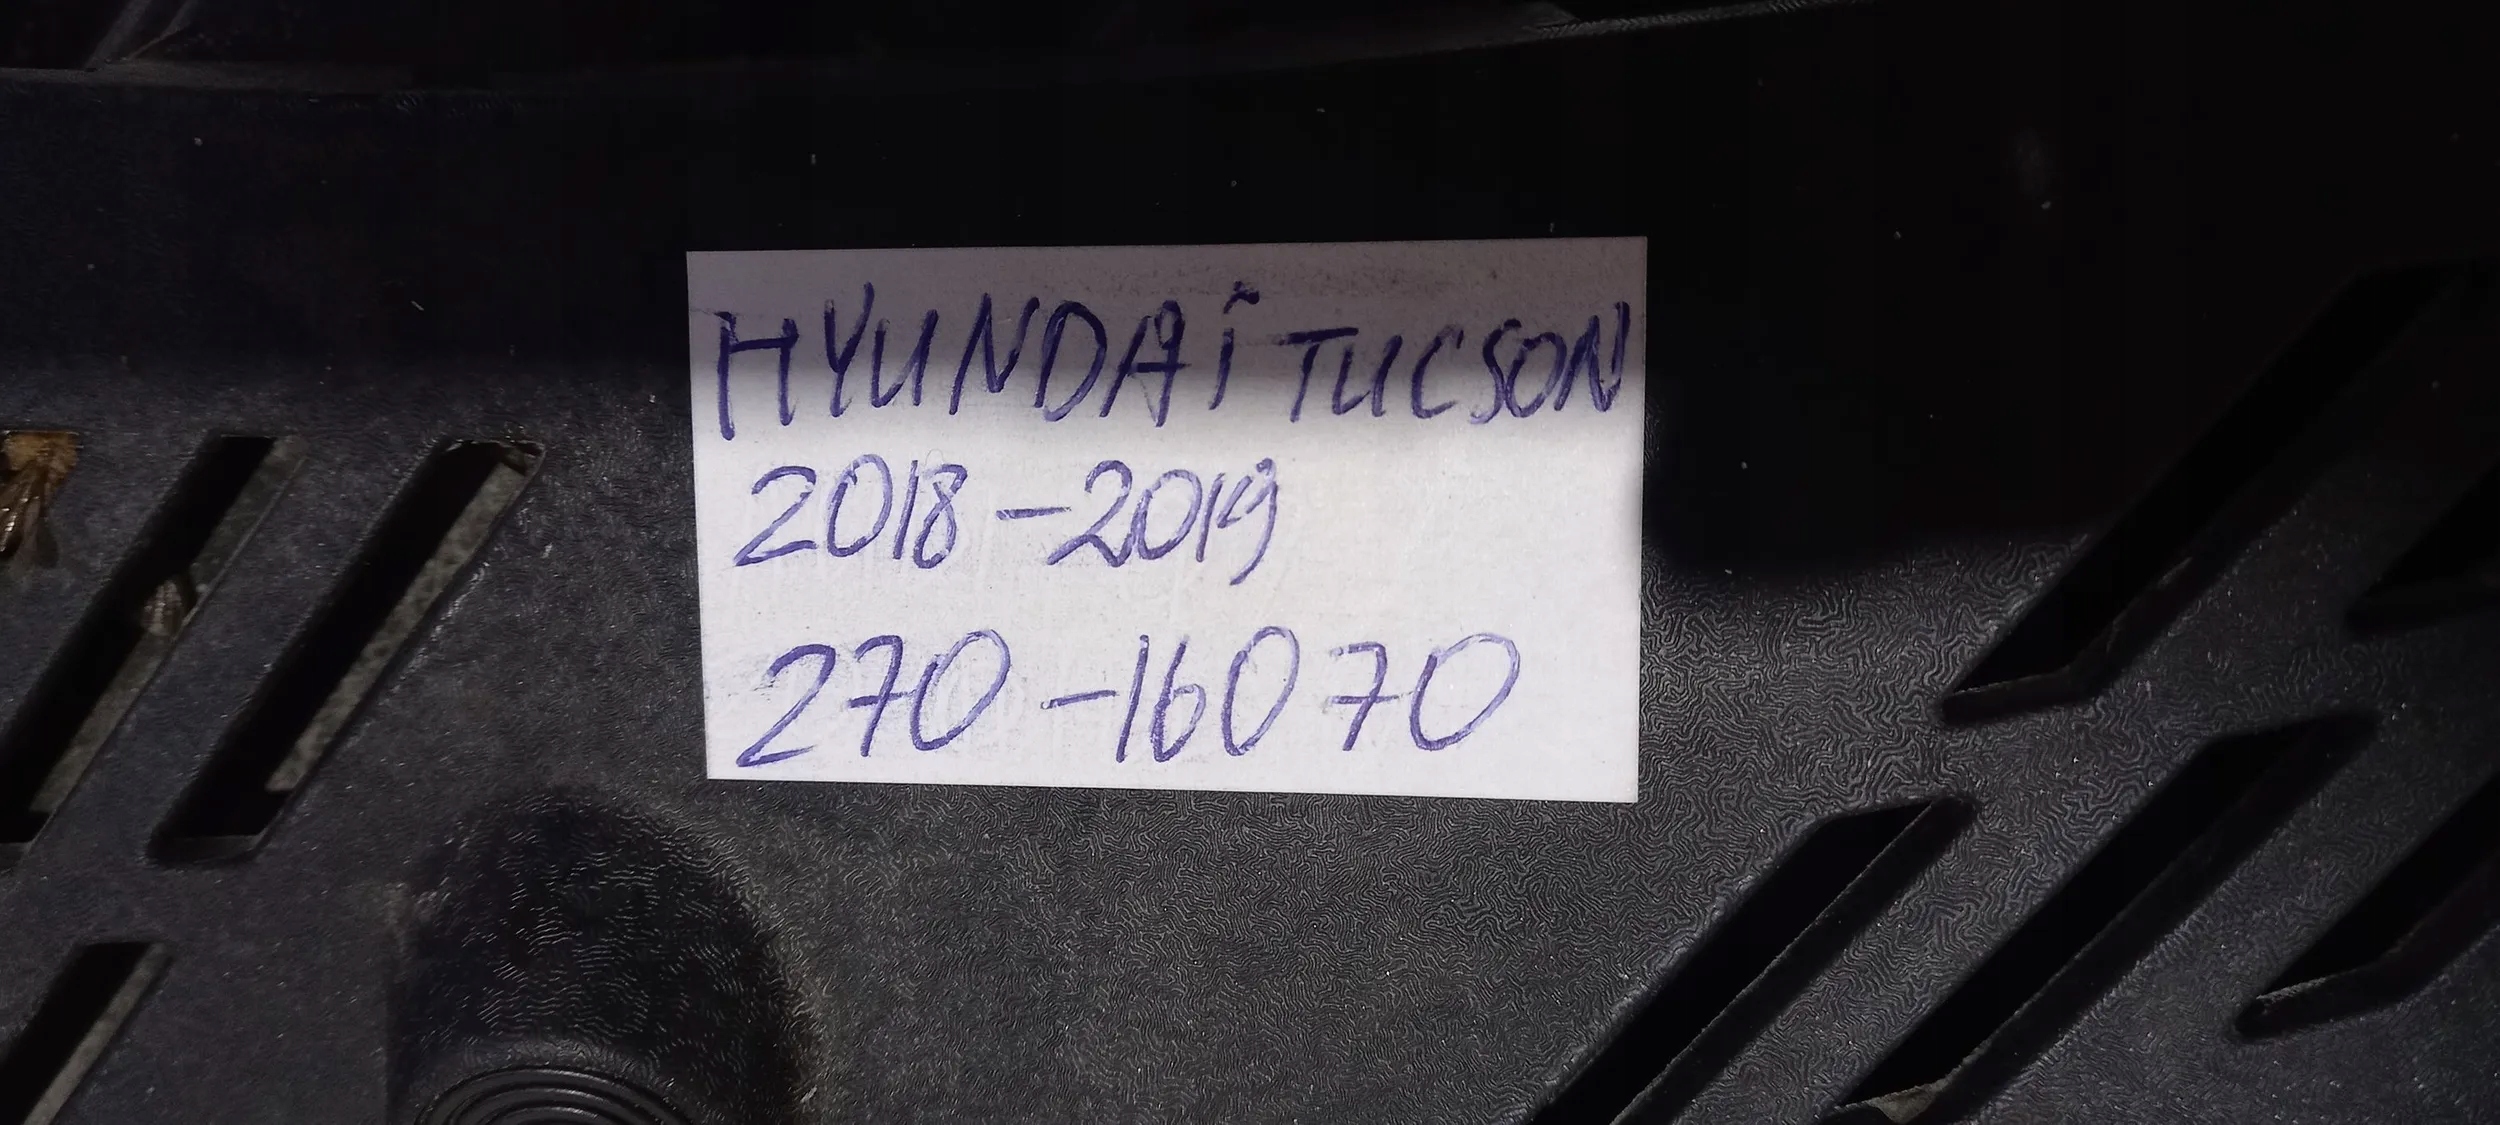 HYUNDAİ TUCSON
2018-2019
270-16070